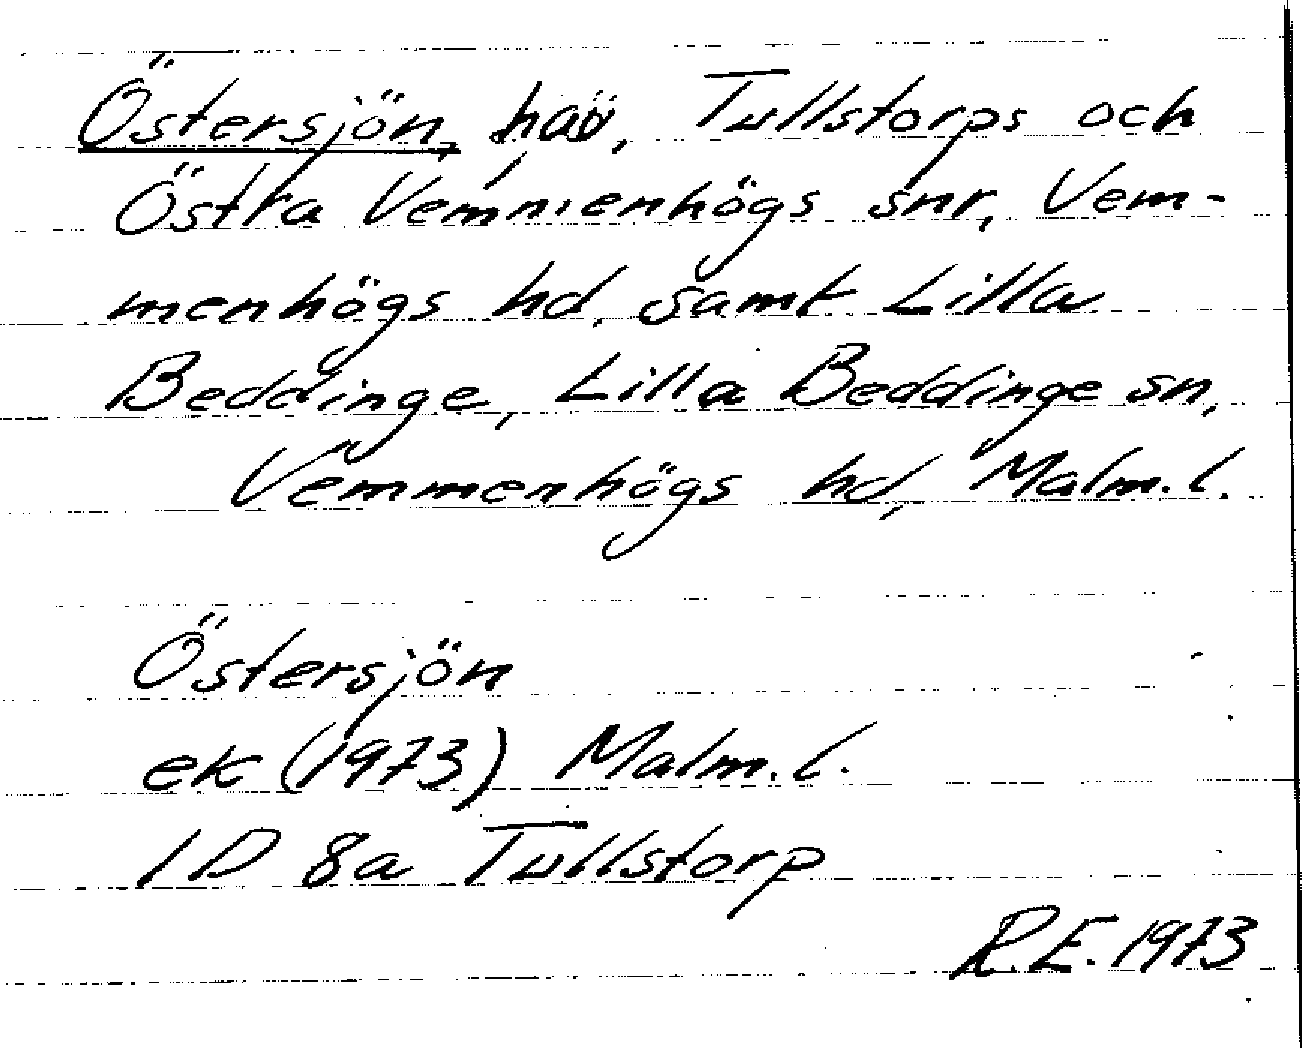 Östersjön, hav, Tullstorps och
Östra Vemmenhögs snr, Vem-
menhögs hd, samt Lilla
Beddinge, Lilla Beddinge sn,
Vemmenhögs hd, Malm. l.
Östersjön
ek (1973) Malm. l.
1D 8a Tullstorp
R.E. 1973